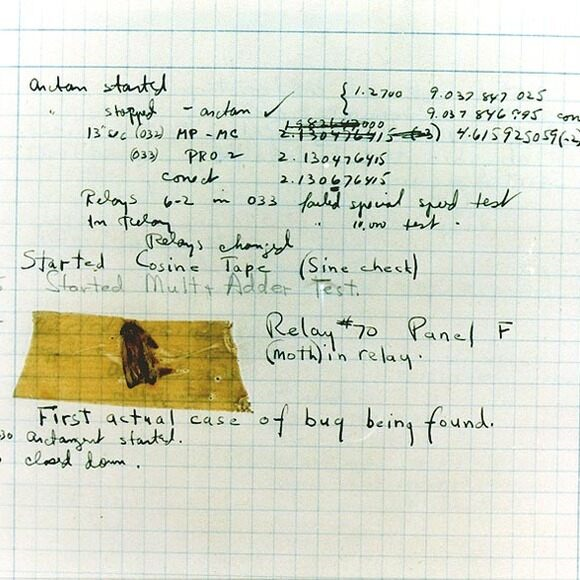 arctan started { 1.2700 9.037 847 025
" stopped - arctan ✓ 9.037 846 995 con
13"uc (032) MP - MC 2.130476415 (-3) 4.615925059(-2
(033) PRO 2 2.130476415
conect 2.130676415
Relays 6-2 in 033 failed special speed test
In Relay " 10,000 test .
Relays changed
Started Cosine Tape (Sine check)
Started Mult + Adder Test.
Relay #70 Panel F
(moth) in relay.
First actual case of bug being found.
arctangent started.
closed down.